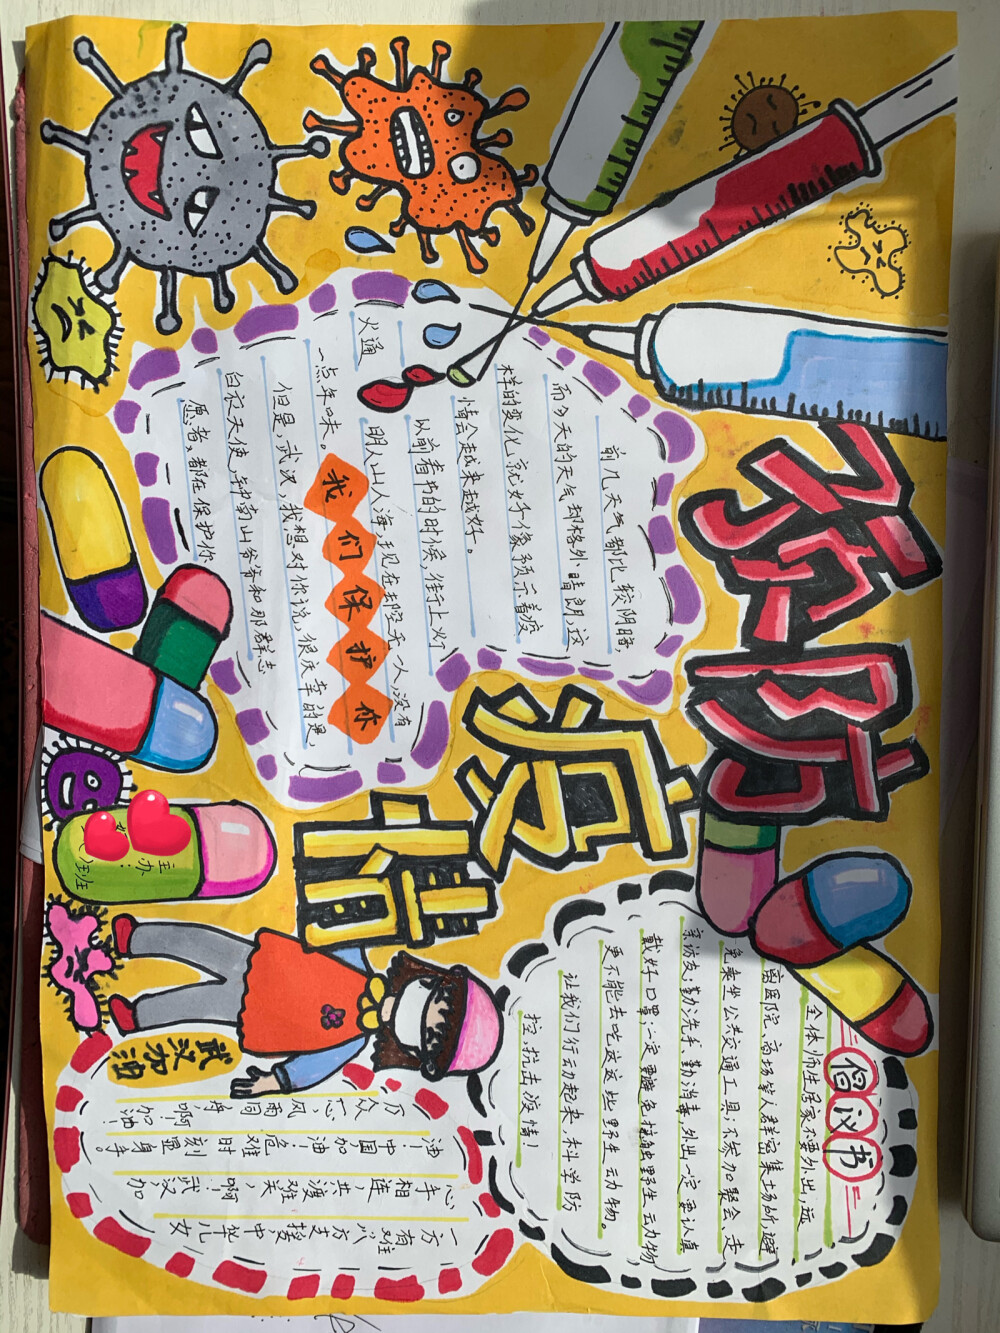 预防
疫情
前几天气都比较阴暗
而今天的天气却格外晴朗,这
样的变化,就好像预示着疫
情会越来越好。
以前春节的时候,街上灯
火通
明人山人海,现在却空无一人,没有
一点年味。
我们保护你
但是,武汉,我想对你说,很庆幸的是,
白衣天使,钟南山爷爷和那群志
愿者,都在保护你
主办:
倡议书
全体师生居家不要外出,远
离医院、商场等人群密集场所,避
免乘坐公共交通工具;不参加聚会、走
亲访友、勤洗手、勤消毒,外出一定要认真
戴好口罩;一定要避免接触野生动物
更不能去吃这这些野生动物。
让我们行动起来,科学防
控,抗击渡情!
武汉加油
一方有难八方支援,中华儿女
心手相连,共渡难关,啊!武汉加
油!中国加油!危难时刻显身手。
万众一心,风雨同舟啊!加油!